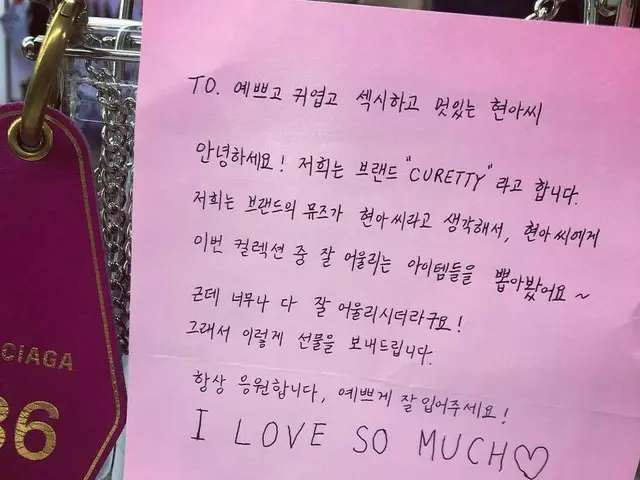 TO. 예쁘고 귀엽고 섹시하고 멋있는 현아씨
안녕하세요! 저희는 브랜드 "CURETTY" 라고 합니다.
저희는 브랜드의 뮤즈가 현아씨라고 생각해서, 현아씨에게
이번 컬렉션 중 잘 어울리는 아이템들을 뽑아봤어요~
근데 너무나 다 잘 어울리시더라구요!
그래서 이렇게 선물을 보내드립니다.
항상 응원합니다, 예쁘게 잘 입어주세요!
I LOVE SO MUCH♡
CIAGA
36